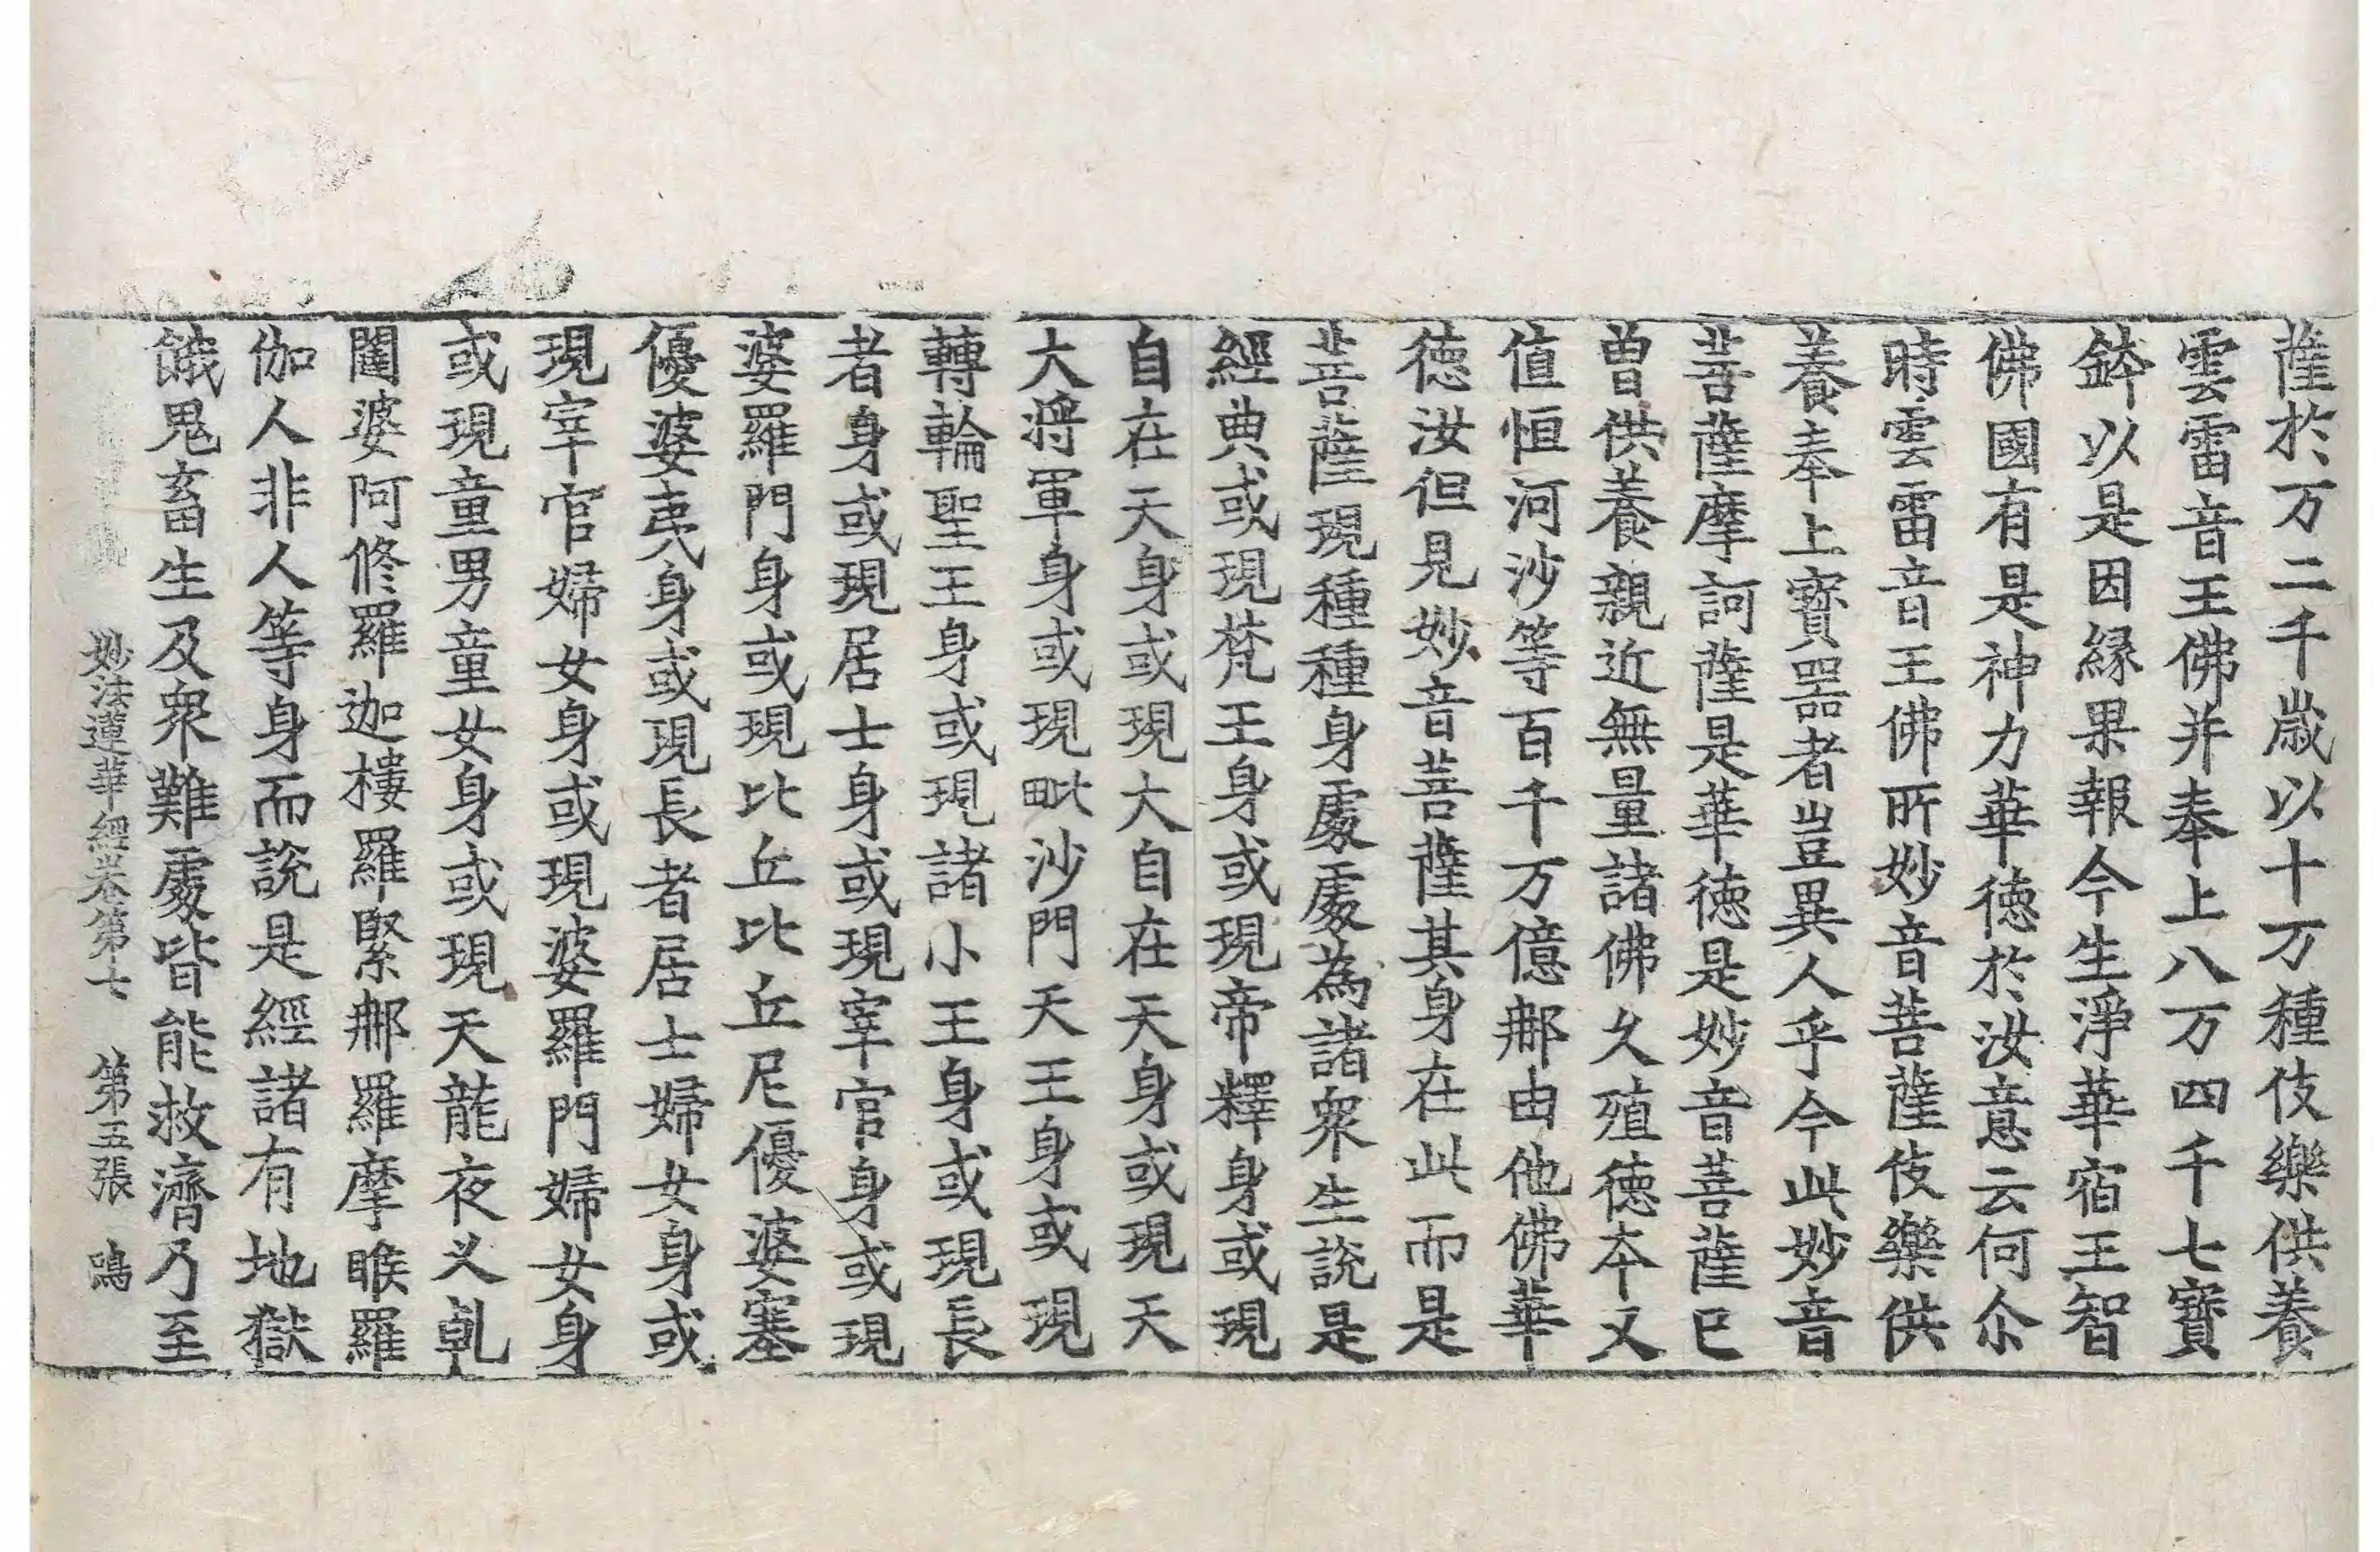 薩於万二千歲以十万種伎樂供養
雲雷音王佛并奉上八万四千七寶
鉢以是因緣果報今生淨華宿王智
佛國有是神力華德於汝意云何尒
時雲雷音王佛所妙音菩薩伎樂供
養奉上寶器者豈異人乎今此妙音
菩薩摩訶薩是華德是妙音菩薩已
曾供養親近無量諸佛久殖德本又
值恒河沙等百千万億那由他佛華
德汝但見妙音菩薩其身在此而是
菩薩現種種身處處為諸衆生說是
經典或現梵王身或現帝釋身或現
自在天身或現大自在天身或現天
大將軍身或現毗沙門天王身或現
轉輪聖王身或現諸小王身或現長
者身或現居士身或現宰官身或現
婆羅門身或現比丘比丘尼優婆塞
優婆夷身或現長者居士婦女身或
現宰官婦女身或現婆羅門婦女身
或現童男童女身或現天龍夜叉乹
闥婆阿修羅迦樓羅緊那羅摩睺羅
伽人非人等身而說是經諸有地獄
餓鬼畜生及衆難處皆能救濟乃至
妙法蓮華經卷第七 第五張 鳴